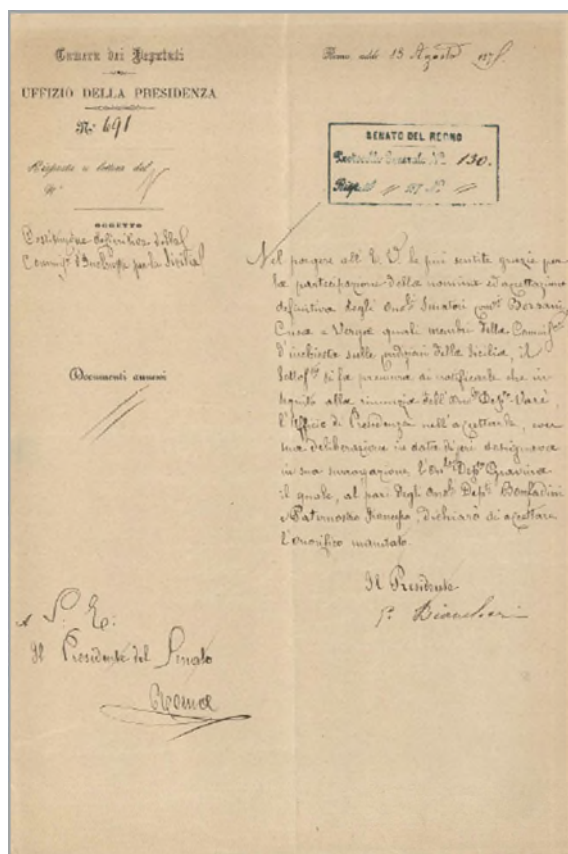 Camera dei Deputati
UFFIZIO DELLA PRESIDENZA
N.° 691
Risposta a lettera del
N.°
OGGETTO
Costituzione definitiva della
Commissne d'Inchiesta per la Sicilia
Documenti annessi
Roma, addì 13 Agosto 1875.
SENATO DEL REGNO
Protocollo Generale N.° 130.
Rispost 187 N.°
Nel porgere all'E. V. le più sentite grazie per
la partecipazione della nomina ed accettazione
definitiva degli onoli Senatori comi Borsani,
Cusa e Verga quali membri della Commissne
d'inchiesta sulle condizioni della Sicilia, il
Sottofto si fa premura di notificarle che in
seguito alla rinunzia dell'onle Depto Varè
l'Ufficio di Presidenza nell'accettarla, con
sua deliberazione in data d'jeri designava
in sua surrogazione l'onle Depto Gravina
il quale, al pari degli onoli Depti Bonfadini
e Paternostro Francesco, dichiarò di accettare
l'onorifico mandato.
Il Presidente
Biancheri
A S. E.
Il Presidente del Senato
Roma